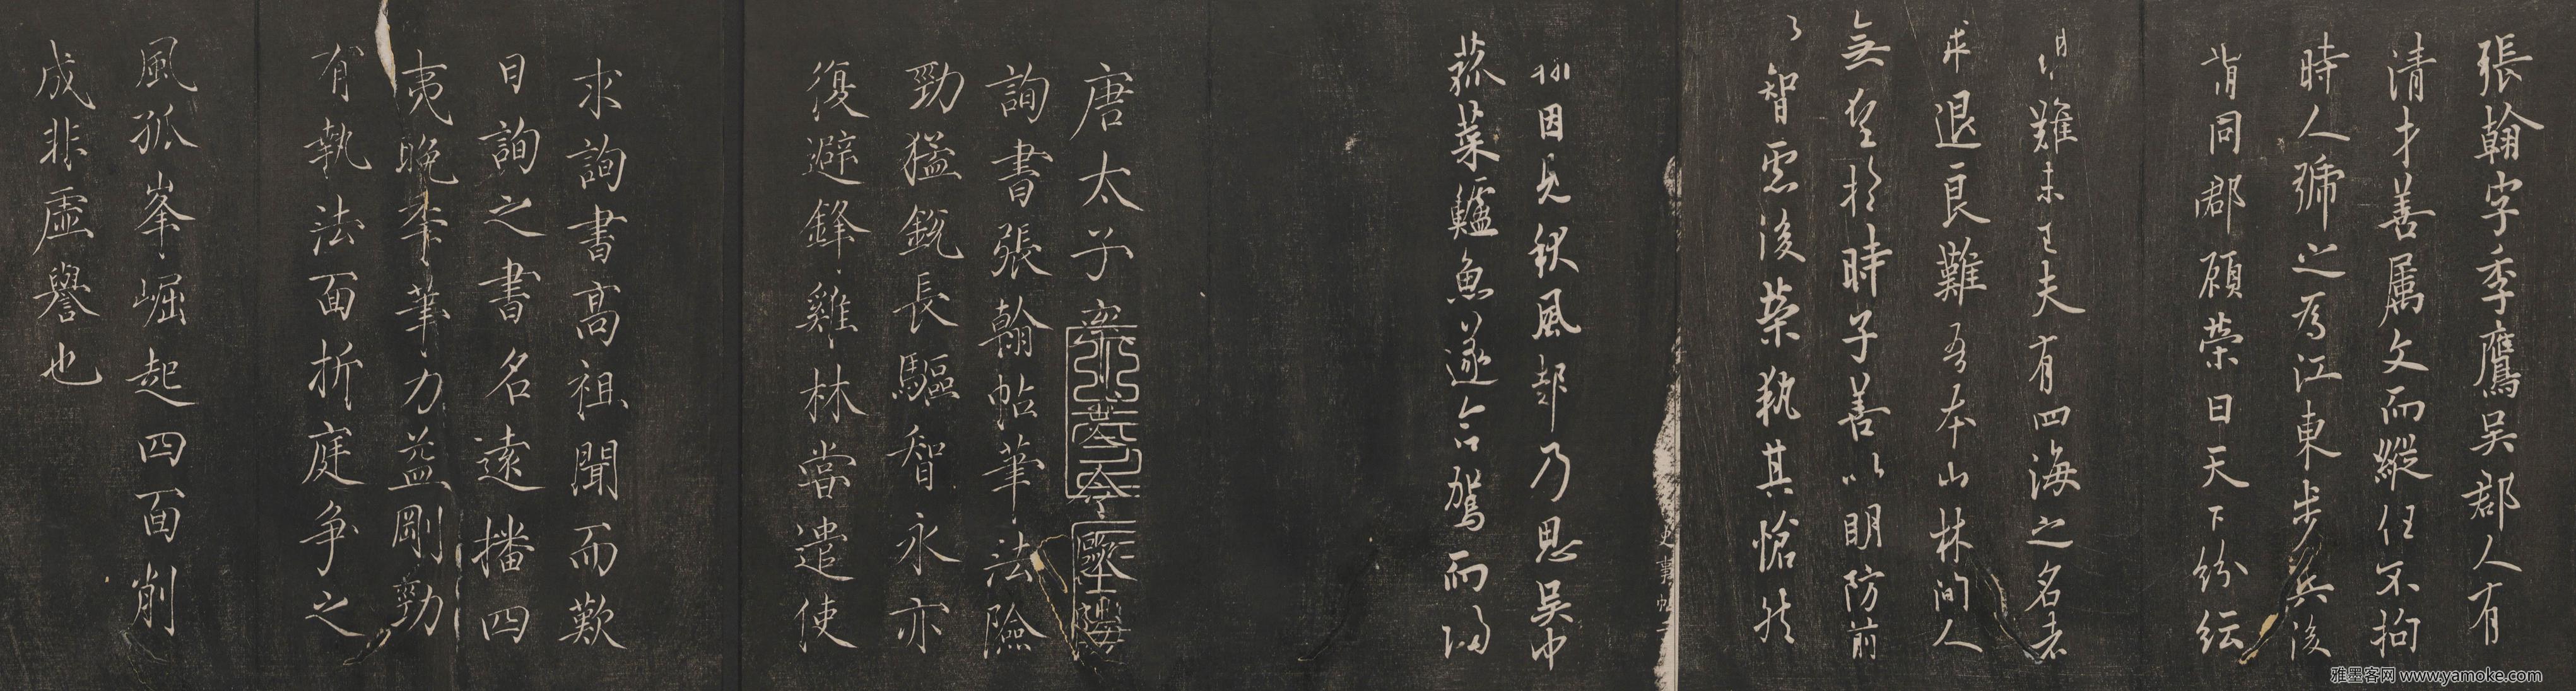 張翰字季鷹吳郡人有
清才善属文而縱任不拘
時人號之为江東步兵後
同郡顾榮曰天下纷紜
難未已夫有四海之名者
求退良難吾本山林间人
無望於時子善以明防前
智慮後榮執其愴然
因見秋風起乃思吳中
菰菜鱸魚遂命駕而歸
史事帖
唐太子率更令歐陽
詢書張翰帖筆法險
勁猛銳長驅智永亦
復避鋒雞林當遣使
求詢書高祖聞而歎
曰詢之書名遠播四
夷晚年筆力益剛勁
有執法面折庭爭之
風孤峯崛起四面削
成非虛譽也
雅墨客网 www.yamoke.com